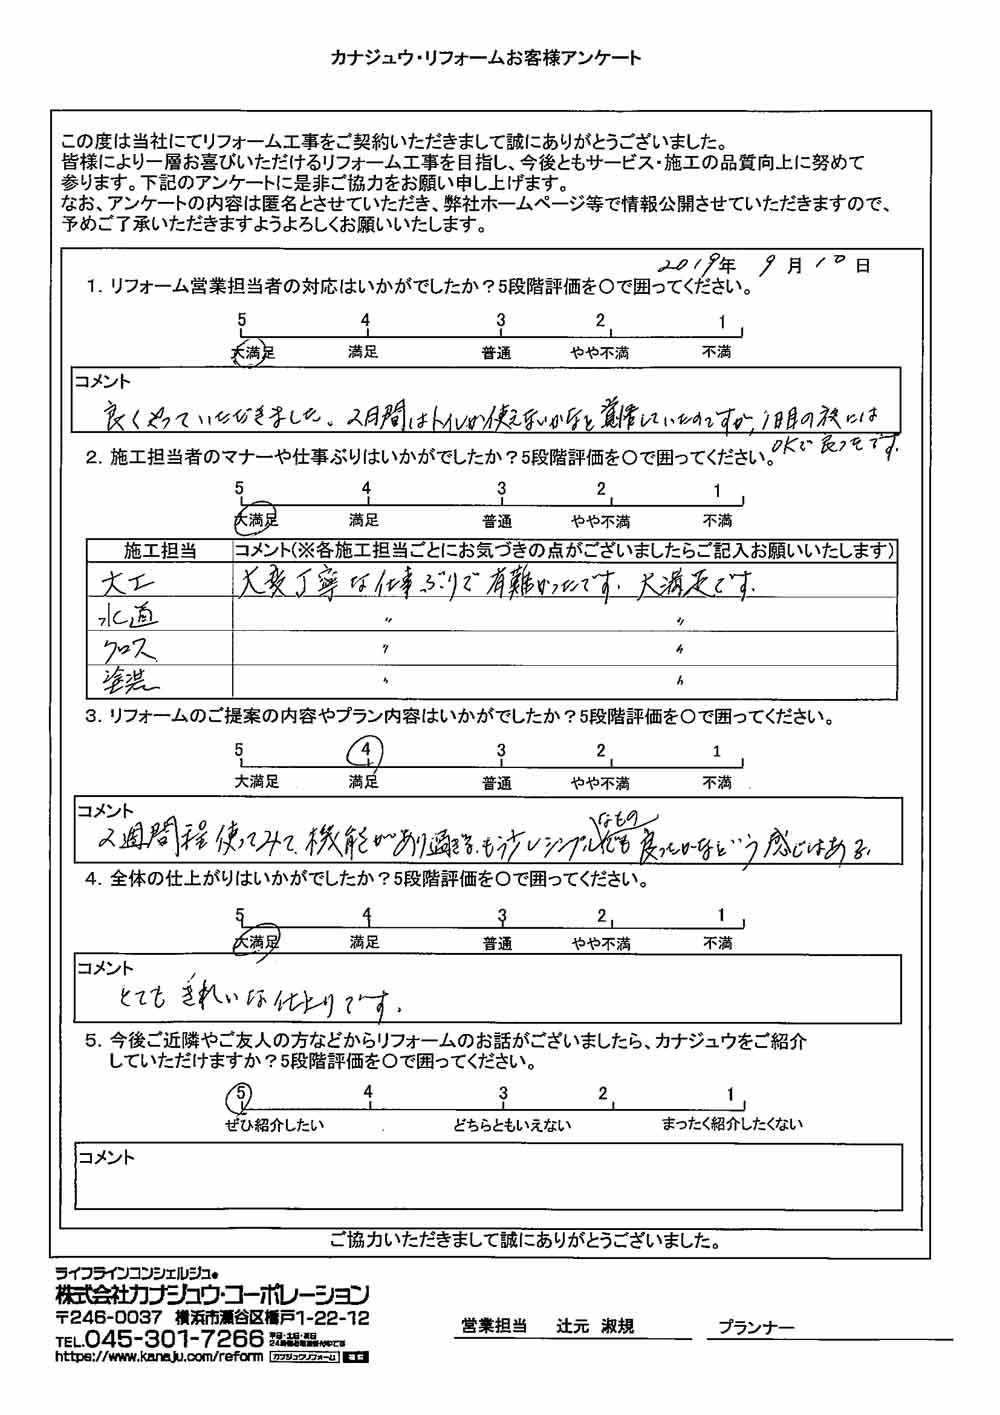 カナジュウ・リフォームお客様アンケート
この度は当社にてリフォーム工事をご契約いただきまして誠にありがとうございました。
皆様により一層お喜びいただけるリフォーム工事を目指し、今後ともサービス・施工の品質向上に努めて
参ります。下記のアンケートに是非ご協力をお願い申し上げます。
なお、アンケートの内容は匿名とさせていただき、弊社ホームページ等で情報公開させていただきますので、
予めご了承いただきますようよろしくお願いいたします。
2019年 9月10日
1. リフォーム営業担当者の対応はいかがでしたか？5段階評価を〇で囲ってください。
5 4 3 2 1
大満足 満足 普通 やや不満 不満
コメント
良くやっていただきました。2日間はトイレが使えないかなと覚悟していたのですが、1日目の夜には
OKで良ったです。
2. 施工担当者のマナーや仕事ぶりはいかがでしたか？5段階評価を〇で囲ってください。
5 4 3 2 1
大満足 満足 普通 やや不満 不満
施工担当 コメント(※各施工担当ごとにお気づきの点がございましたらご記入お願いいたします)
大工 大変丁寧な仕事ぶりで有難かったです。大満足です。
水道 〃 〃
クロス 〃 〃
塗装 〃 〃
3. リフォームのご提案の内容やプラン内容はいかがでしたか？5段階評価を〇で囲ってください。
5 4 3 2 1
大満足 満足 普通 やや不満 不満
コメント
なもの
2週間程使ってみて、機能があり過ぎる。もう少しシンプルでも良ったかなという感じはある。
4. 全体の仕上がりはいかがでしたか？5段階評価を〇で囲ってください。
5 4 3 2 1
大満足 満足 普通 やや不満 不満
コメント
とても きれいな仕上りです。
5. 今後ご近隣やご友人の方などからリフォームのお話がございましたら、カナジュウをご紹介
していただけますか？5段階評価を〇で囲ってください。
5 4 3 2 1
ぜひ紹介したい どちらともいえない まったく紹介したくない
コメント
ご協力いただきまして誠にありがとうございました。
ライフラインコンシェルジュ●
株式会社カナジュウ・コーポレーション
〒246-0037 横浜市瀬谷区橋戸1-22-12
TEL.045-301-7266
https://www.kanaju.com/reform カナジュウリフォーム 検索
営業担当 辻元 淑規 プランナー